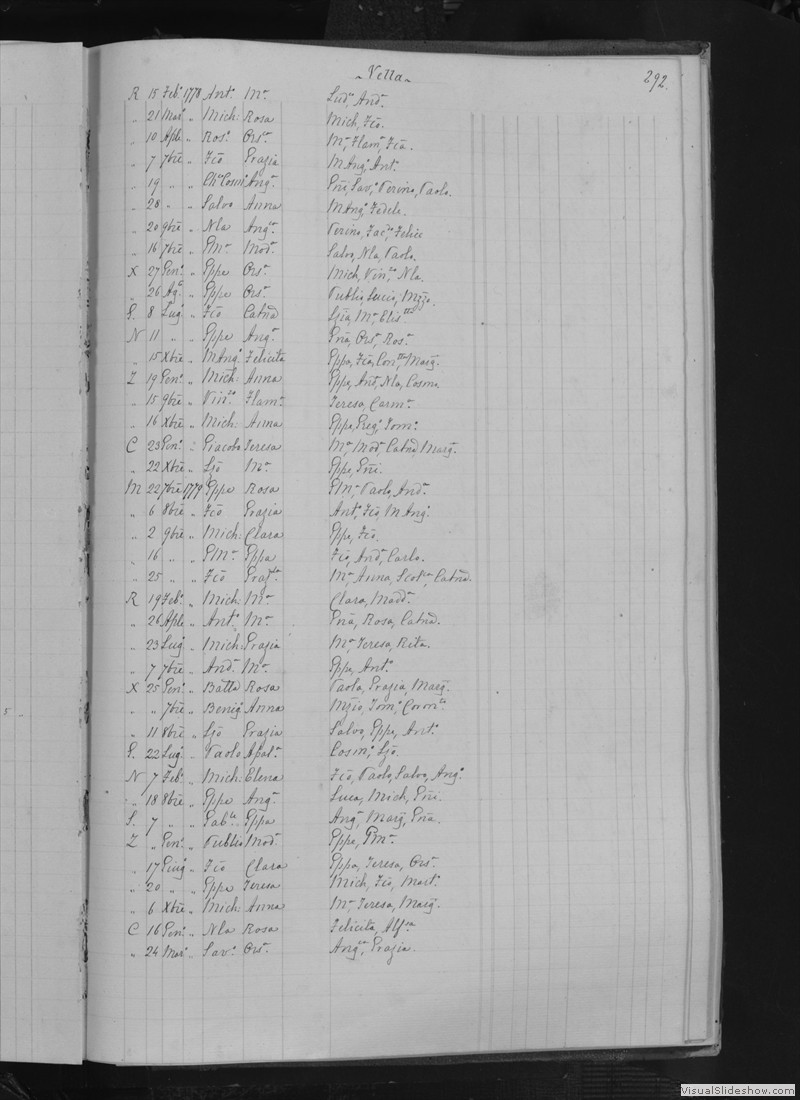 Vella
292.
R 15 Feb.º 1778 Ant.º M.ª Lud.ª And.ª
„ 21 Mar.º „ Mich: Rosa Mich, Fcõ.
„ 10 Aple „ Ros.º Ors.ª M.ª, Flam.ª, Fcã.
„ 7 7bre „ Fcõ Grazia M Ang.º, Ant.º
„ 19 „ „ Cosm.º Ang.ª Sav.ª, Verino, Paolo.
„ 28 „ „ Salvo Anna M Ang.º, Fedele.
„ 20 9bre „ Nla Ang.ca Verino, Felice
„ 16 7bre „ GM.ª Mod.ª Salvo, Nla, Paolo.
X 27 Gen.º „ Gppe Ors.ª Mich, Vin.zo, Nla.
„ 26 Ag.º „ Gppe Ors.ª Publio, Lucio,
G. 8 Lug.º „ Fcõ Catnã Ljã, M.ª, Elis.tta
N 11 „ „ Gppe Ang.ª Gnã, Ors.ª, Ros.ª
„ 15 Xbre „ M Ang.º Felicita Gppa, Fcã, Marg.ª
Z 19 Gen.º „ Mich: Anna Gppe, Ant.º, Nla, Cosmo
„ 15 9bre „ Vin.zo Flam.ª Teresa, Carm.ª
„ 16 Xbre „ Mich: Anna Gppe, Greg.º, Tom.º
C 23 Gen.º : Giacobo Teresa M.ª, Mod.ª, Catnã, Marg.ª
„ 22 Xbre „ Ljõ M.ª Gppe, Gñi.
M 22 7bre 1779 Gppe Rosa GM.ª, Paolo, And.ª
„ 6 8bre „ Fcõ Grazia Ant.º, Fcõ, M Ang.º
„ 2 9bre „ Mich: Clara Gppe, Fcõ.
„ 16 „ „ GM.ª Gppa Fcõ, And.ª, Carlo.
„ 25 „ „ Fcõ M.ª, Anna, Scol.ca, Catnã.
R 19 Feb.º „ Mich: M.ª Clara, Madd.ª
„ 26 Aple „ Ant.º M.ª Gnã, Rosa, Catnã.
„ 23 Lug.º „ Mich: Grazia M.ª, Teresa, Rita.
„ 7 7bre „ And.ª M.ª Gppe, Ant.º
X 25 Gen.º „ Batta Rosa Paola, Grazia, Marg.ª
„ „ 7bre „ Benig.º Anna Tom.º,
„ 11 8bre „ Ljõ Grazia Salvo, Gppe, Ant.º
G. 22 Lug.º „ Paolo Apol.ª Cosm.º, Ljõ.
N 7 Feb.º „ Mich: Elena Fcõ, Paolo, Salvo, Ang.º
„ 18 8bre „ Gppe Ang.ª Luca, Mich, Gñi.
S. 7 „ „ Gab.le Gppa Ang.ª, Marg.ª, Gnã.
Z „ Gen.º „ Publio Mod.ª Gppe, GM.ª
„ 17 Giug.º „ Fcõ Clara Gppa, Teresa, Ors.ª
„ 20 „ „ Gppe Teresa Mich, Fcõ, Mart.º
„ 6 Xbre „ Mich: Anna M.ª, Teresa, Marg.ª
C 16 Gen.º „ Nla Rosa Felicita,
„ 24 Mar.º „ Sav.º Ors.ª Ang.ca, Grazia.
5 „
VisualSlideshow.com